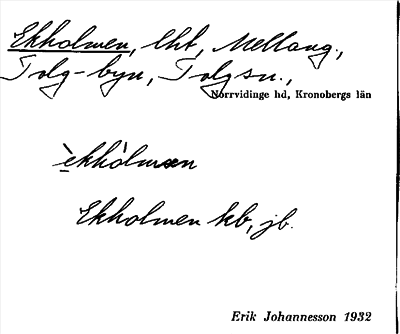 Ekholmen, lht, Mellang.,
Tolg-byn, Tolg sn.,
Norrvidinge hd, Kronobergs län
èkhòlmæn
Ekholmen kb, jb.
Erik Johannesson 1932